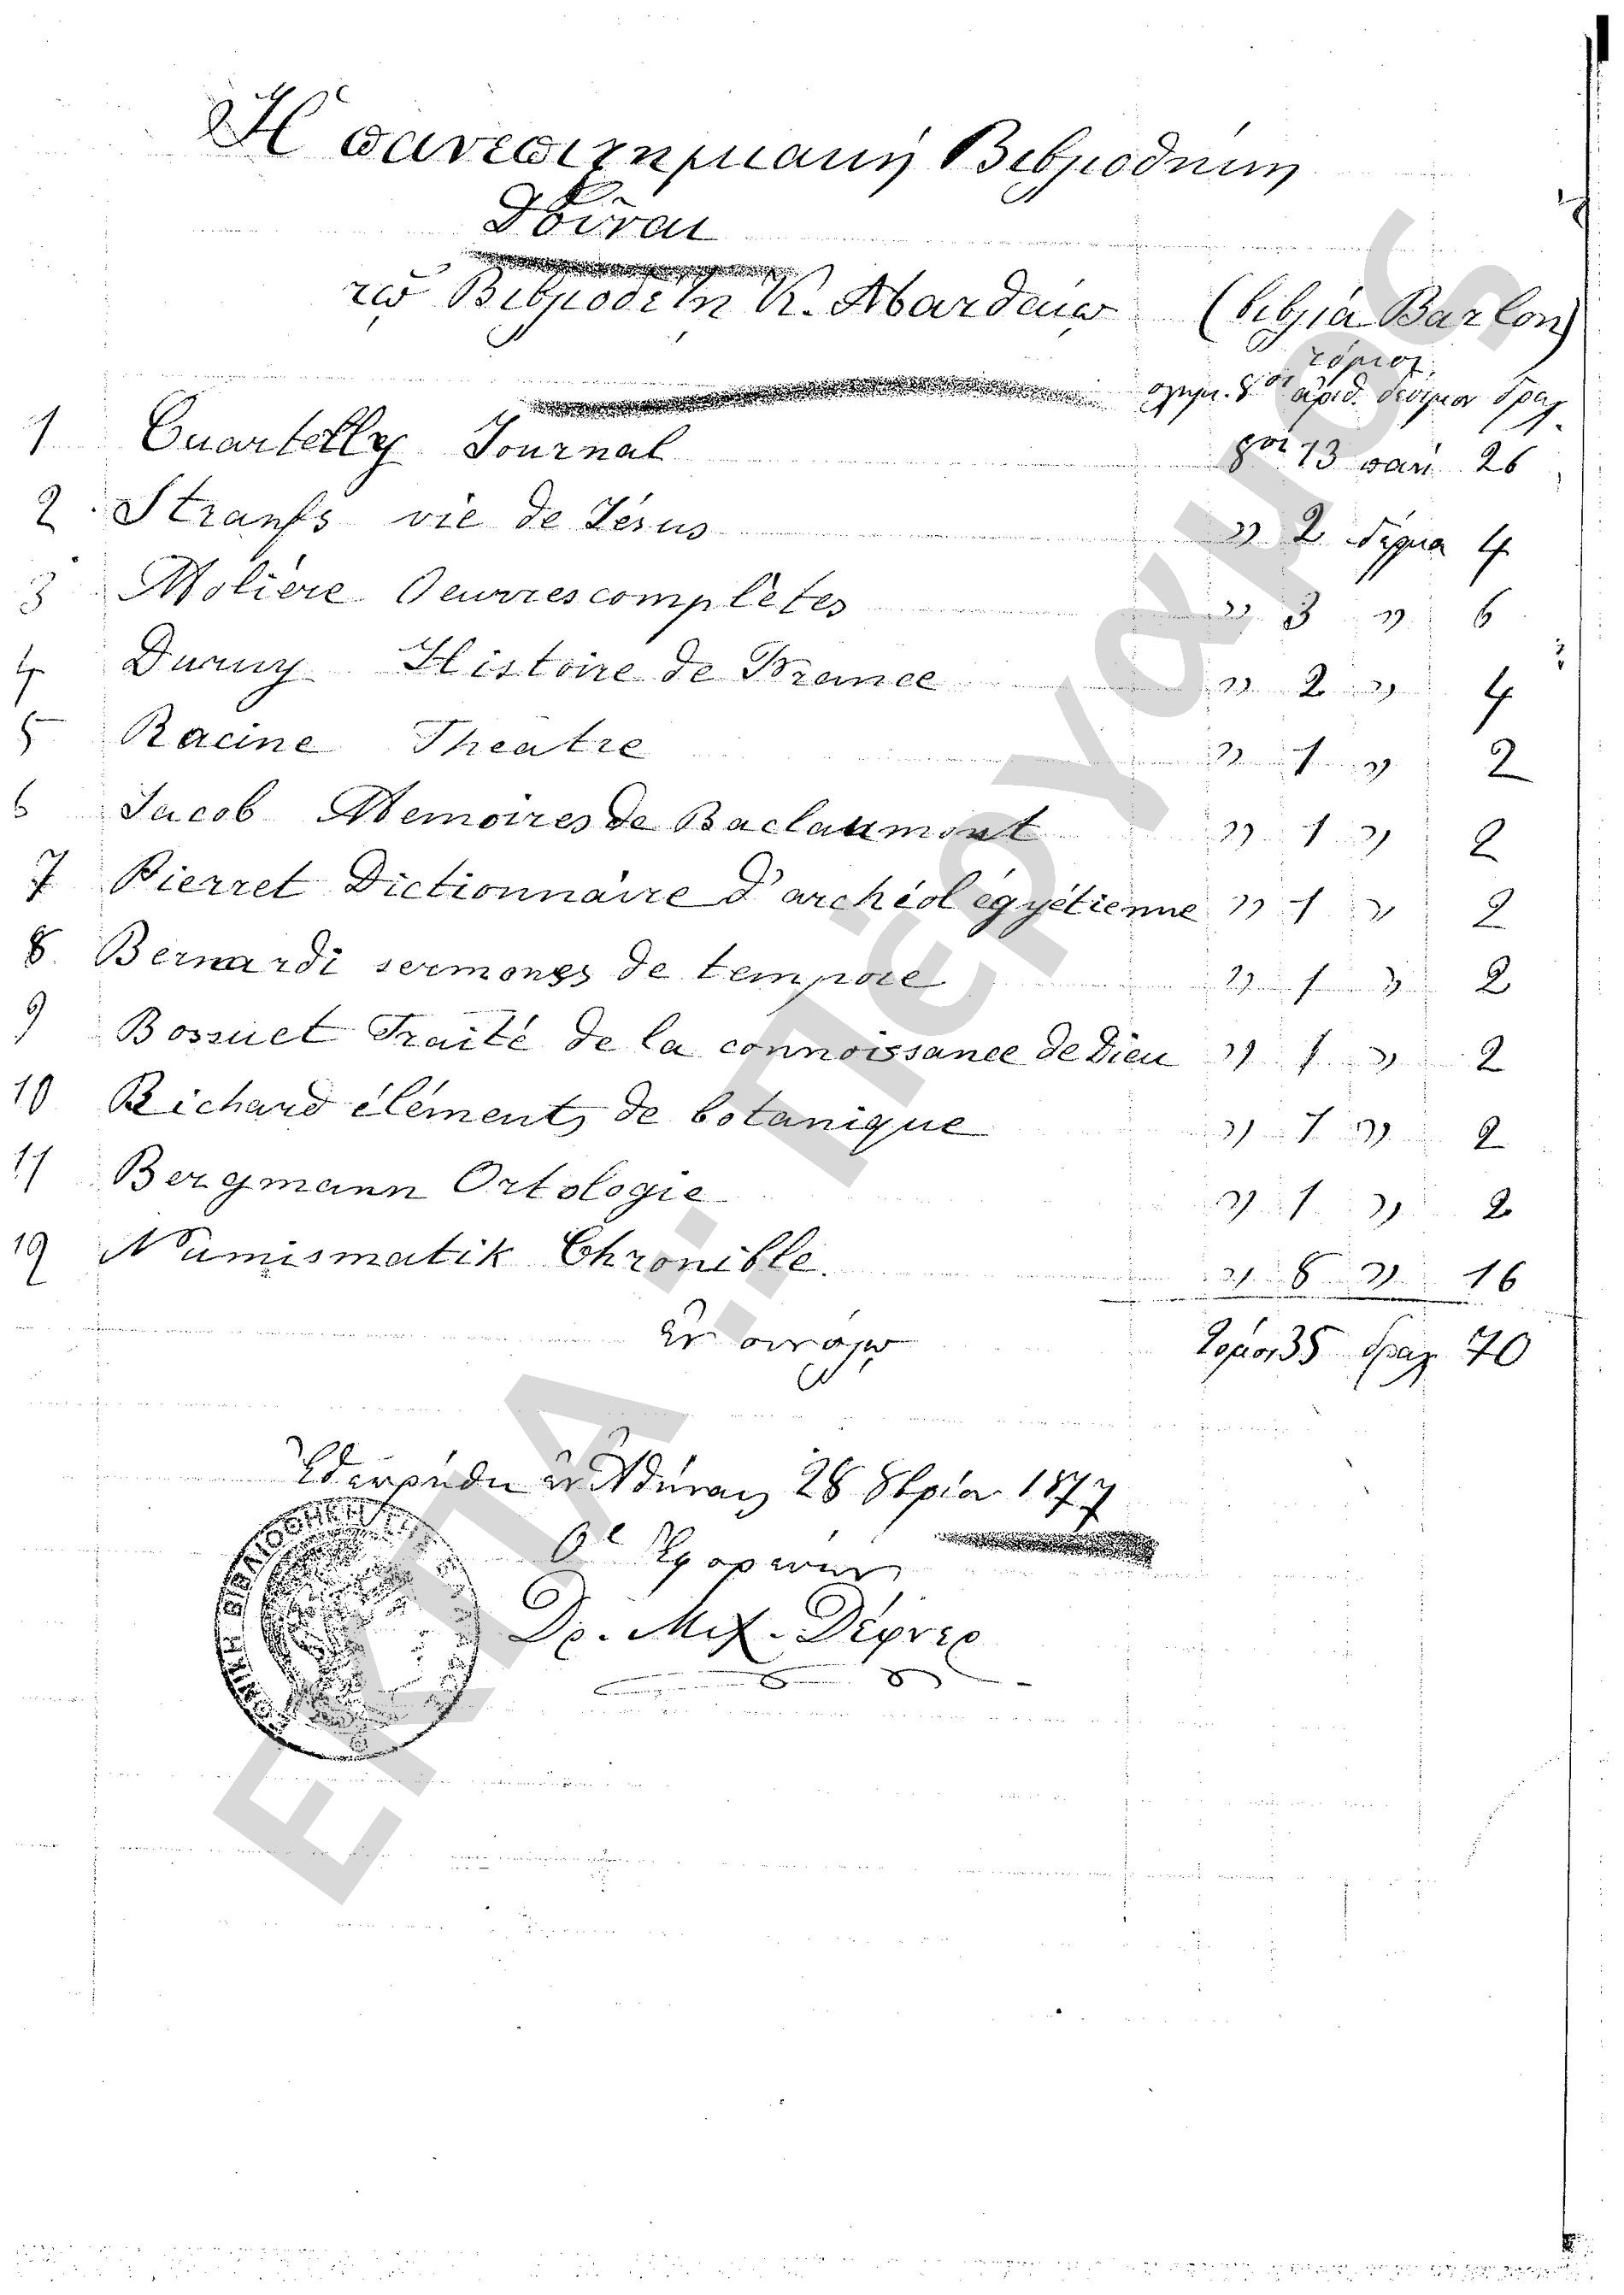 Ἡ πανεπιστημιακὴ Βιβλιοθήκη
Δοῦναι
τῷ Βιβλιοδέτῃ Κ. Μαρδάκῳ (βιβλία Barlon)
τόμοι
σχημ. 8ον ἀριθ. δέσιμον δραχ.
1 Cuartelly Journal 8ον 13 πανί 26
2 Straufs vie de Jésus " 2 δέρμα 4
3 Molière Oeuvres complètes " 3 " 6
4 Duruy Histoire de France " 2 " 4
5 Racine Theatre " 1 " 2
6 Jacob Memoires de Baclaumont " 1 " 2
7 Pierret Dictionnaire d'archéol égyétienne " 1 " 2
8 Bernardi sermones de tempore " 1 " 2
9 Bossuet Traité de la connoissance de Dieu " 1 " 2
10 Richard éléments de botanique " 1 " 2
11 Bergmann Ortologie " 1 " 2
12 Numismatik Chronible. " 8 " 16
Ἐν συνόλῳ Τόμοι 35 δραχ 70
Ἐθεωρήθη ἐν Ἀθήναις 28 8βρίου 1877
Ὁ Ἐφορεύων
Δρ. Μιχ. Δέφνερ
ΕΘΝΙΚΗ ΒΙΒΛΙΟΘΗΚΗ ΤΗΣ ΕΛΛΑΔΟΣ
ΕΚΠΑ:: Πέργαμος